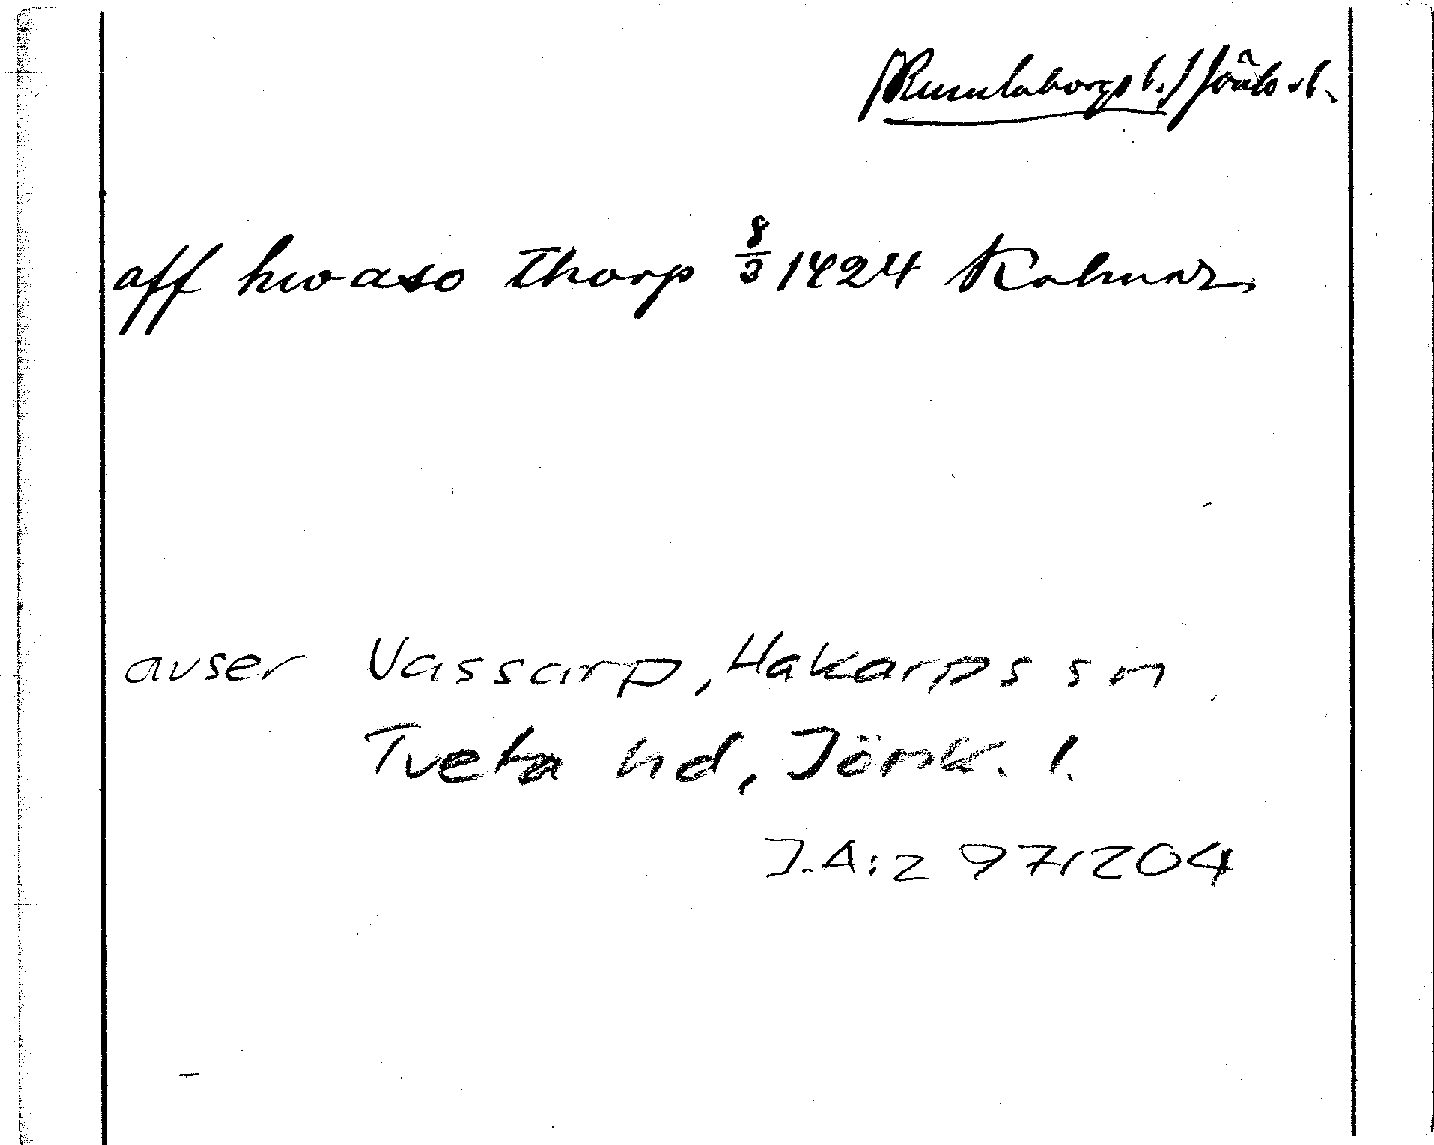 [Rumlaborgs l.] Jönk. l.
aff hwaso thorp 8/3 1424 
avser Vassarp, Hakarps sn
Tveta hd, Jönk. l.
J.A:2 97/204